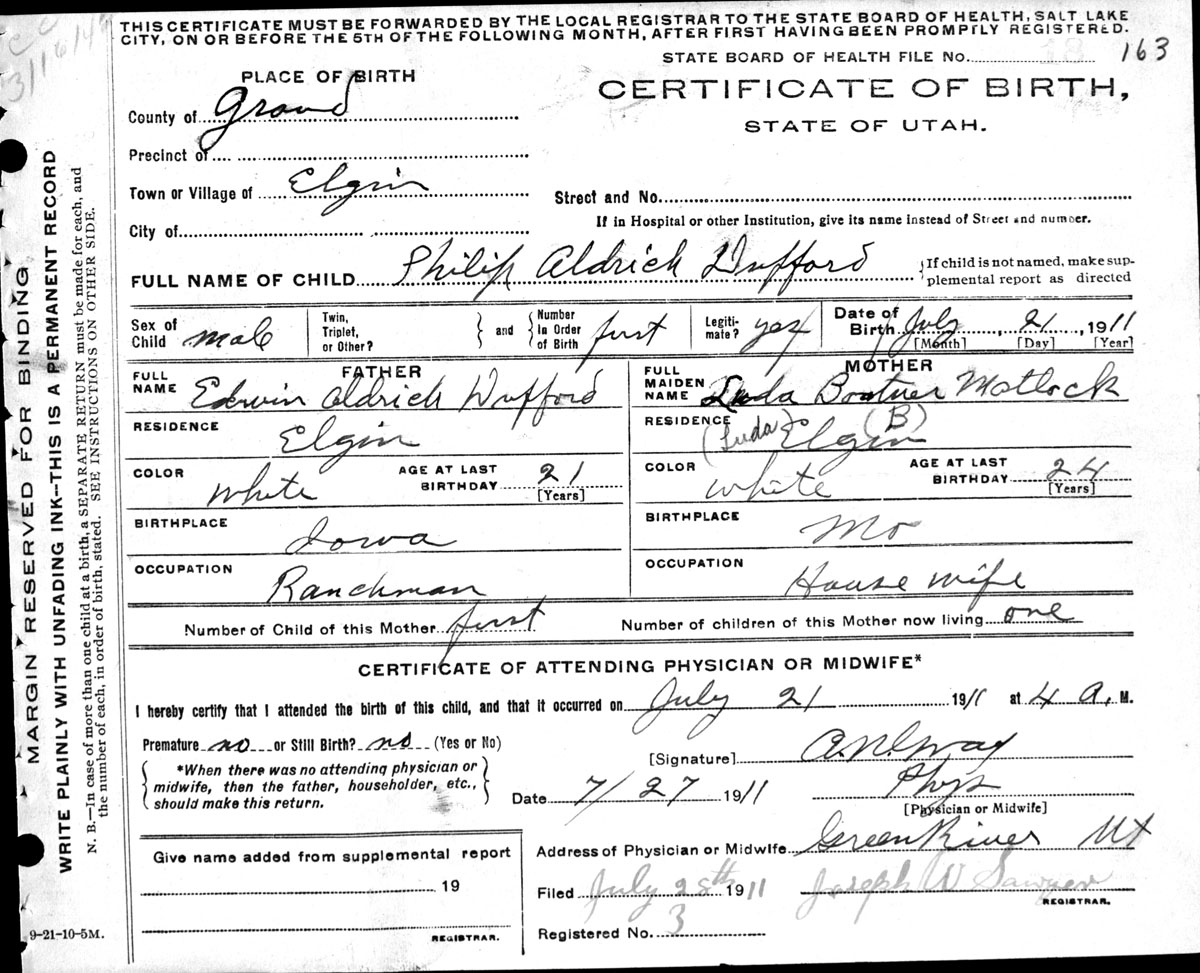 THIS CERTIFICATE MUST BE FORWARDED BY THE LOCAL REGISTRAR TO THE STATE BOARD OF HEALTH, SALT LAKE
CITY, ON OR BEFORE THE 5TH OF THE FOLLOWING MONTH, AFTER FIRST HAVING BEEN PROMPTLY REGISTERED.
STATE BOARD OF HEALTH FILE No. 18 163
PLACE OF BIRTH
CERTIFICATE OF BIRTH,
STATE OF UTAH.
County of Grand
Precinct of
Town or Village of Elgin
Street and No.
If in Hospital or other Institution, give its name instead of Street and number.
City of
FULL NAME OF CHILD Philip Aldrich Wufford
If child is not named, make sup-
plemental report as directed
Sex of Child male
Twin, Triplet, or Other?
and
Number In Order of Birth first
Legiti-mate? yes
Date of Birth July, 21, 1911
[Month] [Day] [Year]
FATHER
FULL NAME Edwin Aldrich Wufford
RESIDENCE Elgin
COLOR White AGE AT LAST BIRTHDAY 21
[Years]
BIRTHPLACE Iowa
OCCUPATION Ranchman
MOTHER
FULL MAIDEN NAME Luda Matlock
RESIDENCE (Luda) Elgin (B)
COLOR White AGE AT LAST BIRTHDAY 24
[Years]
BIRTHPLACE Mo
OCCUPATION House wife
Number of Child of this Mother first Number of children of this Mother now living one
CERTIFICATE OF ATTENDING PHYSICIAN OR MIDWIFE*
I hereby certify that I attended the birth of this child, and that it occurred on July 21 1911 at 4 a. M.
Premature no or Still Birth? no (Yes or No)
*When there was no attending physician or
midwife, then the father, householder, etc.,
should make this return.
[Signature]
Date 7/27 1911 Phys
[Physician or Midwife]
Address of Physician or Midwife Green River Ut
Filed July 28th 1911 Joseph W Sawyer
REGISTRAR.
Registered No. 3
Give name added from supplemental report
19
REGISTRAR.
9-21-10-5M.
MARGIN RESERVED FOR BINDING
WRITE PLAINLY WITH UNFADING INK--THIS IS A PERMANENT RECORD
N. B.—In case of more than one child at a birth, a SEPARATE RETURN must be made for each, and
the number of each, in order of birth, stated. SEE INSTRUCTIONS ON OTHER SIDE.